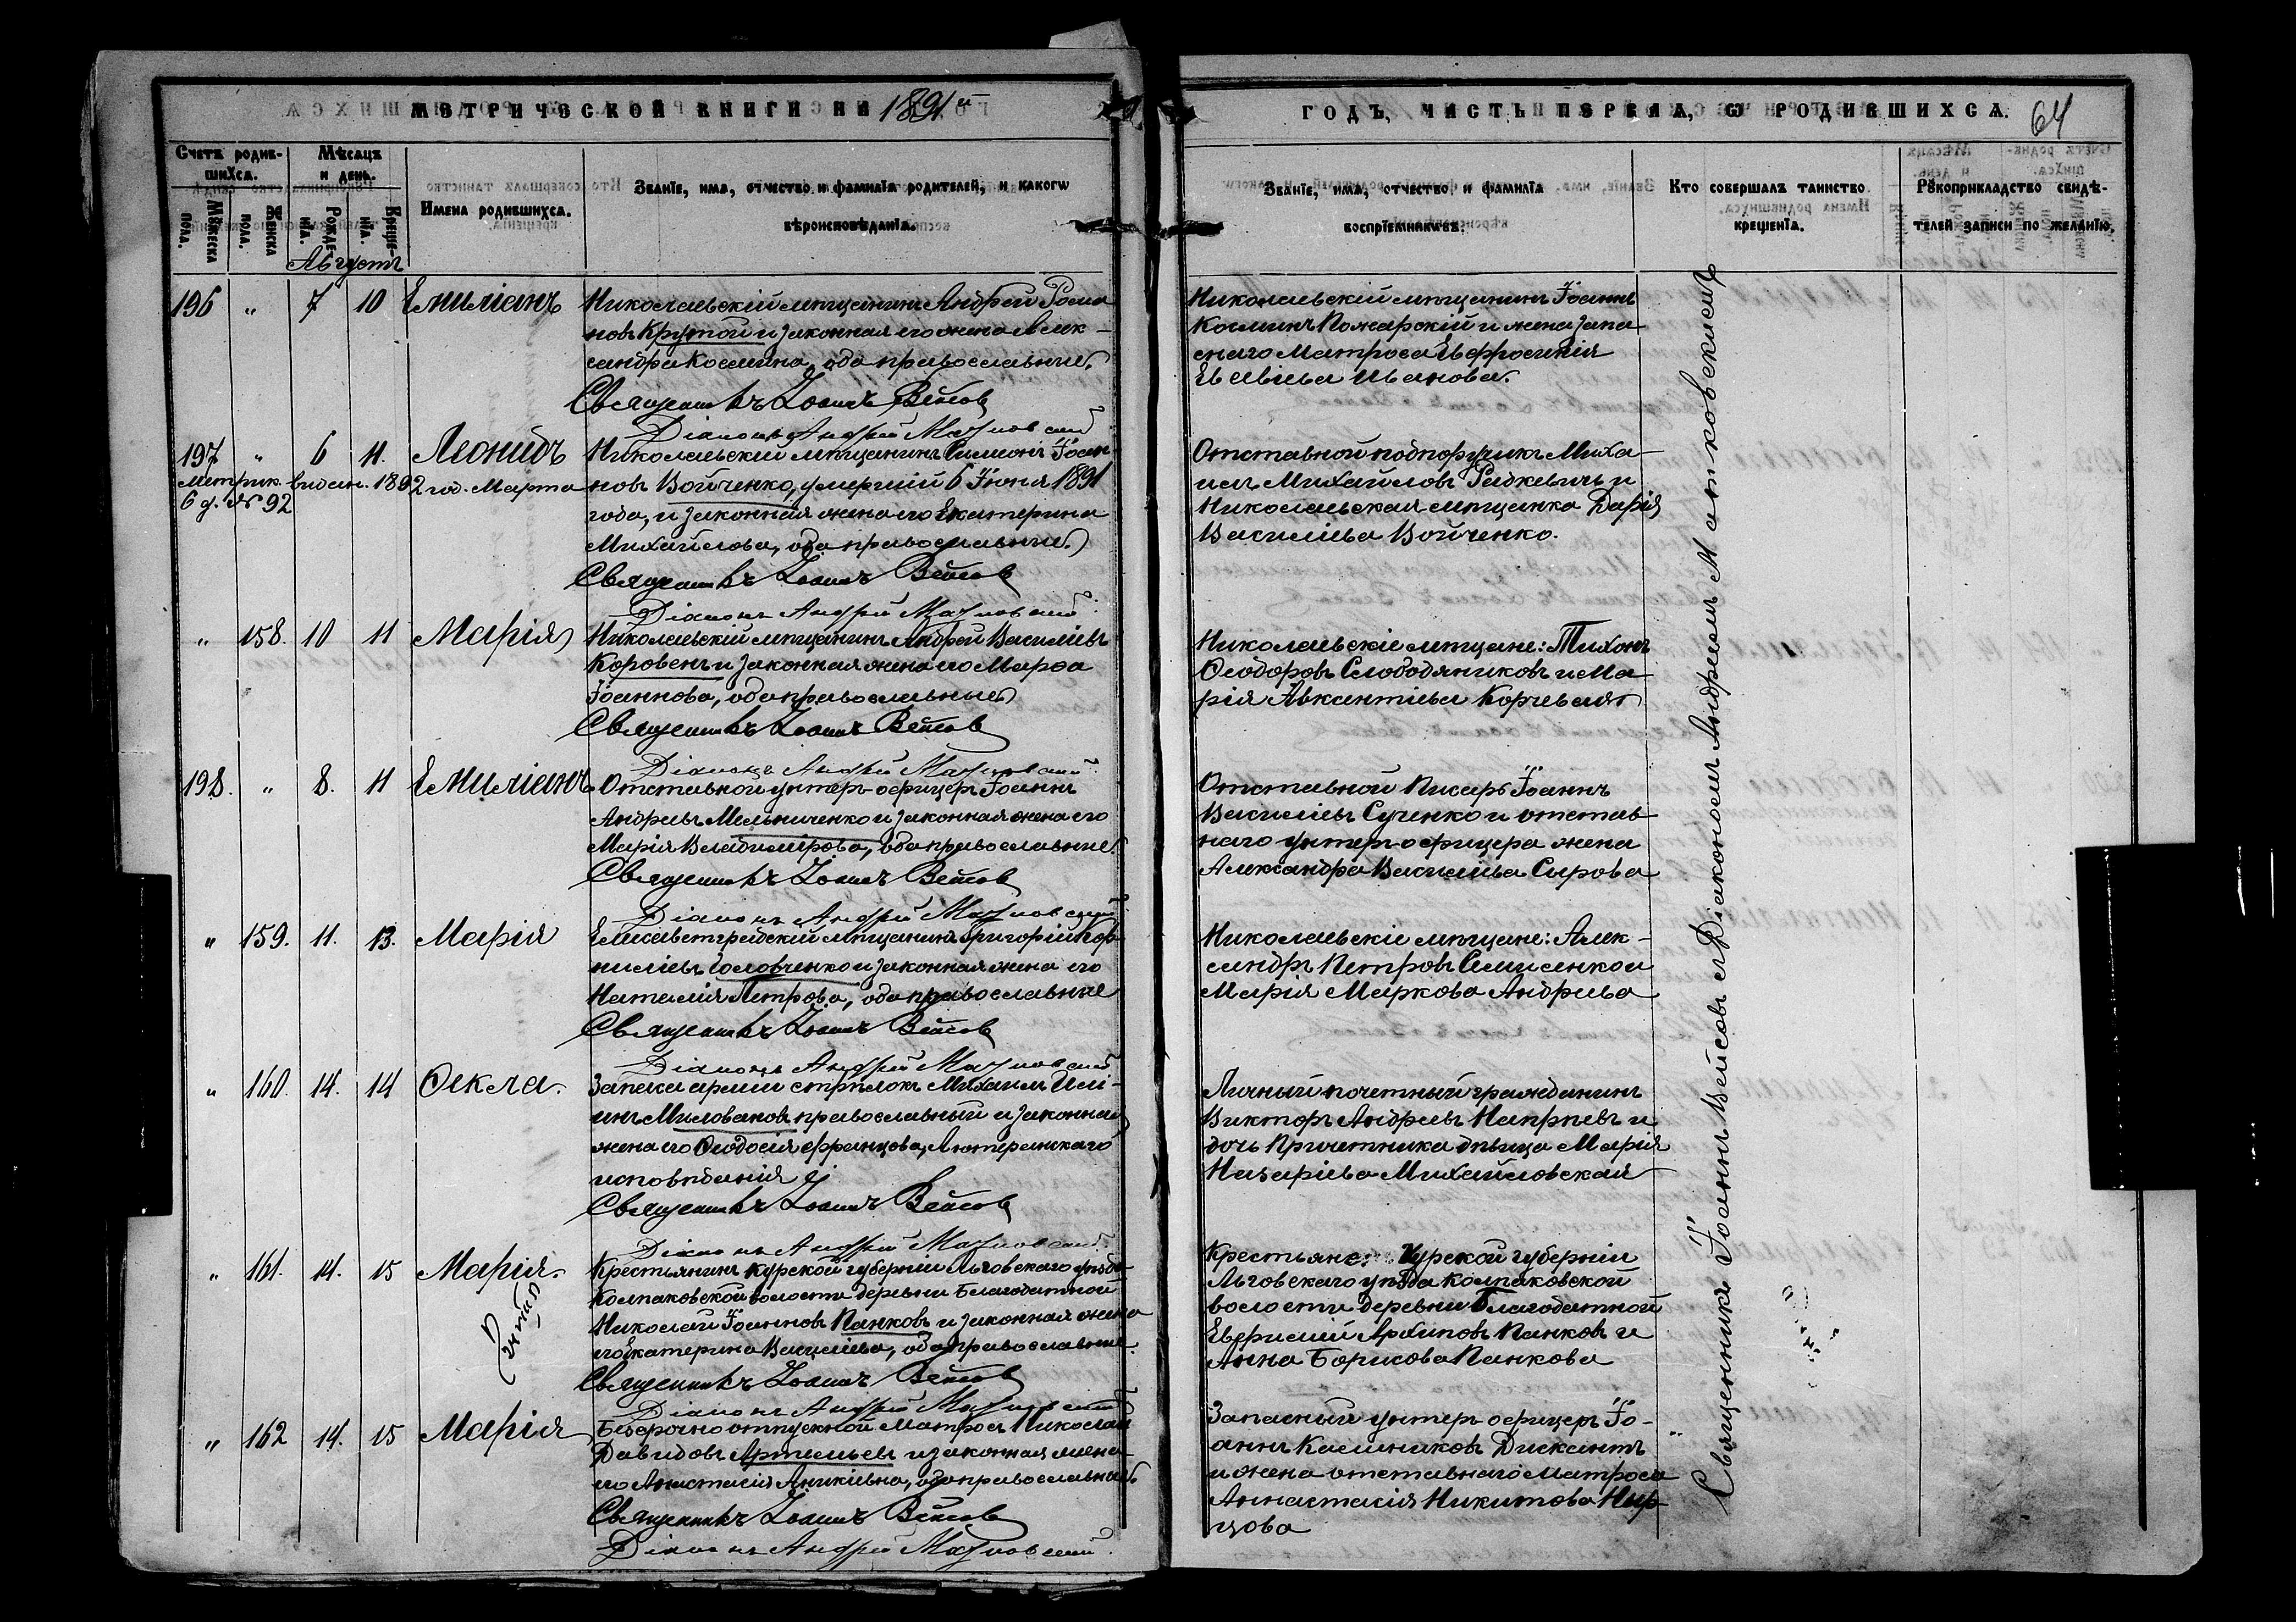 МЕТРИЧЕСКОЙ КНИГИ НА 1891й
ГОДЪ, ЧАСТЬ ПЕРВАЯ, Ѡ РОДИВШИХСА. 64
Счетъ родив-
шихсѧ.
Мѣсѧцъ
и день.
Мꙋжеска
пола.
Женска
пола.
Рожде-
нїѧ.
Креще-
нїѧ.
Имена родившихсѧ.
Званїе, имѧ, отчество и фамилїѧ родителей, и какогѡ
вѣроисповѣданїѧ.
Званїе, имѧ, отчество и фамилїѧ
воспрїемникѡвъ.
Кто совершалъ таинство
крещенїѧ.
Рꙋкоприкладство свидѣ-
телей записи по желанїю.
Августъ
196 " 7 10 Емиліанъ
Николаевскій мѣщанинъ Андрей Рома
новъ Крутой и законная его жена Алек-
сандра Космина, оба православные.
Священникъ Іоаннъ Вейсовъ
Діаконъ Андрей
Николаевскій мѣщанинъ Іоаннъ
Косминъ Пожарскій и жена запа
снаго Матроса Евфросинія
Евсевіева Иванова.
197 " 6 11. Леонидъ
Метрик. выдан. 1892 год. Марта
6 д. № 92
Николаевскій мѣщанинъ Симеонъ Іоан
новъ Войченко, умершій 6 Іюня 1891
года, и законная жена его Екатерина
Михайлова, оба православные.
Священникъ Іоаннъ Вейсовъ
Діаконъ Андрей
Отставной подпоручикъ Миха
илъ Михайловъ Радкевичъ и
Николаевская мѣщанка Дарія
Василіева Войченко.
" 158. 10 11 Марія
Николаевскій мѣщанинъ Андрей Василіевъ
Коровенъ и законная жена его Марѳа
Іоаннова, оба православные
Священникъ Іоаннъ Вейсовъ
Діаконъ Андрей
Николаевскіе мѣщане: Тихонъ
Ѳеодоровъ Слободяниковъ и Ма
рія Авксентіева Корчевая
198. " 8. 11 Емиліанъ
Отставной унтеръ-офицеръ Іоаннъ
Андреевъ Мельниченко и законная жена его
Марія Владимірова, оба православные.
Священникъ Іоаннъ Вейсовъ
Діаконъ Андрей
Отставной Писарь Іоаннъ
Василіевъ Сученко и отстав
наго унтеръ-офицера жена
Александра Василіева Сырова
" 159. 11. 13. Марія
Елисаветградскій мѣщанинъ Григорій Кор
ниліевъ Головченко и законная жена его
Наталія Петрова, оба православные
Священникъ Іоаннъ Вейсовъ
Діаконъ Андрей
Николаевскіе мѣщане: Алек-
сандръ Петровъ Самисенко и
Марія Маркова Андреева
" 160. 14. 14 Ѳекла.
Запаса арміи стрѣлокъ Михаилъ Илі-
инъ Миловановъ православный и законная
жена его Ѳеодосія Францова, Лютеранскаго
исповѣданія
Священникъ Іоаннъ Вейсовъ
Діаконъ Андрей
Личный почетный гражданинъ
Викторъ Андреевъ Напрѣевъ и
дочь Причетника дѣвица Марія
Назаріева Михайловская
" 161. 14. 15 Марія.
Крестьянинъ Курской губерніи Льговскаго уѣзда
Колпаковской волости деревни Благодатной
Николай Іоанновъ Панковъ и законная жена
его Екатерина Василіева, оба православные.
Священникъ Іоаннъ Вейсовъ
Діаконъ Андрей
Крестьяне: Курской губерніи
Льговскаго уѣзда Колпаковской
волости деревни Благодатной
Евфимій Архиповъ Панковъ и
Анна Борисова Панкова
" 162 14. 15 Марія
Безсрочно отпускной матросъ Николай
Давидовъ Артемьевъ и законная жена
его Анастасія Аникіевна, оба православные
Священникъ Іоаннъ Вейсовъ
Діаконъ Андрей
Запасный унтеръ-офицеръ Іо-
аннъ Калиниковъ Дискантъ
и жена отставнаго Матроса
Анастасія Никитова Нир-
цова
Священникъ Іоаннъ Вейсовъ съ Діакономъ Андреемъ